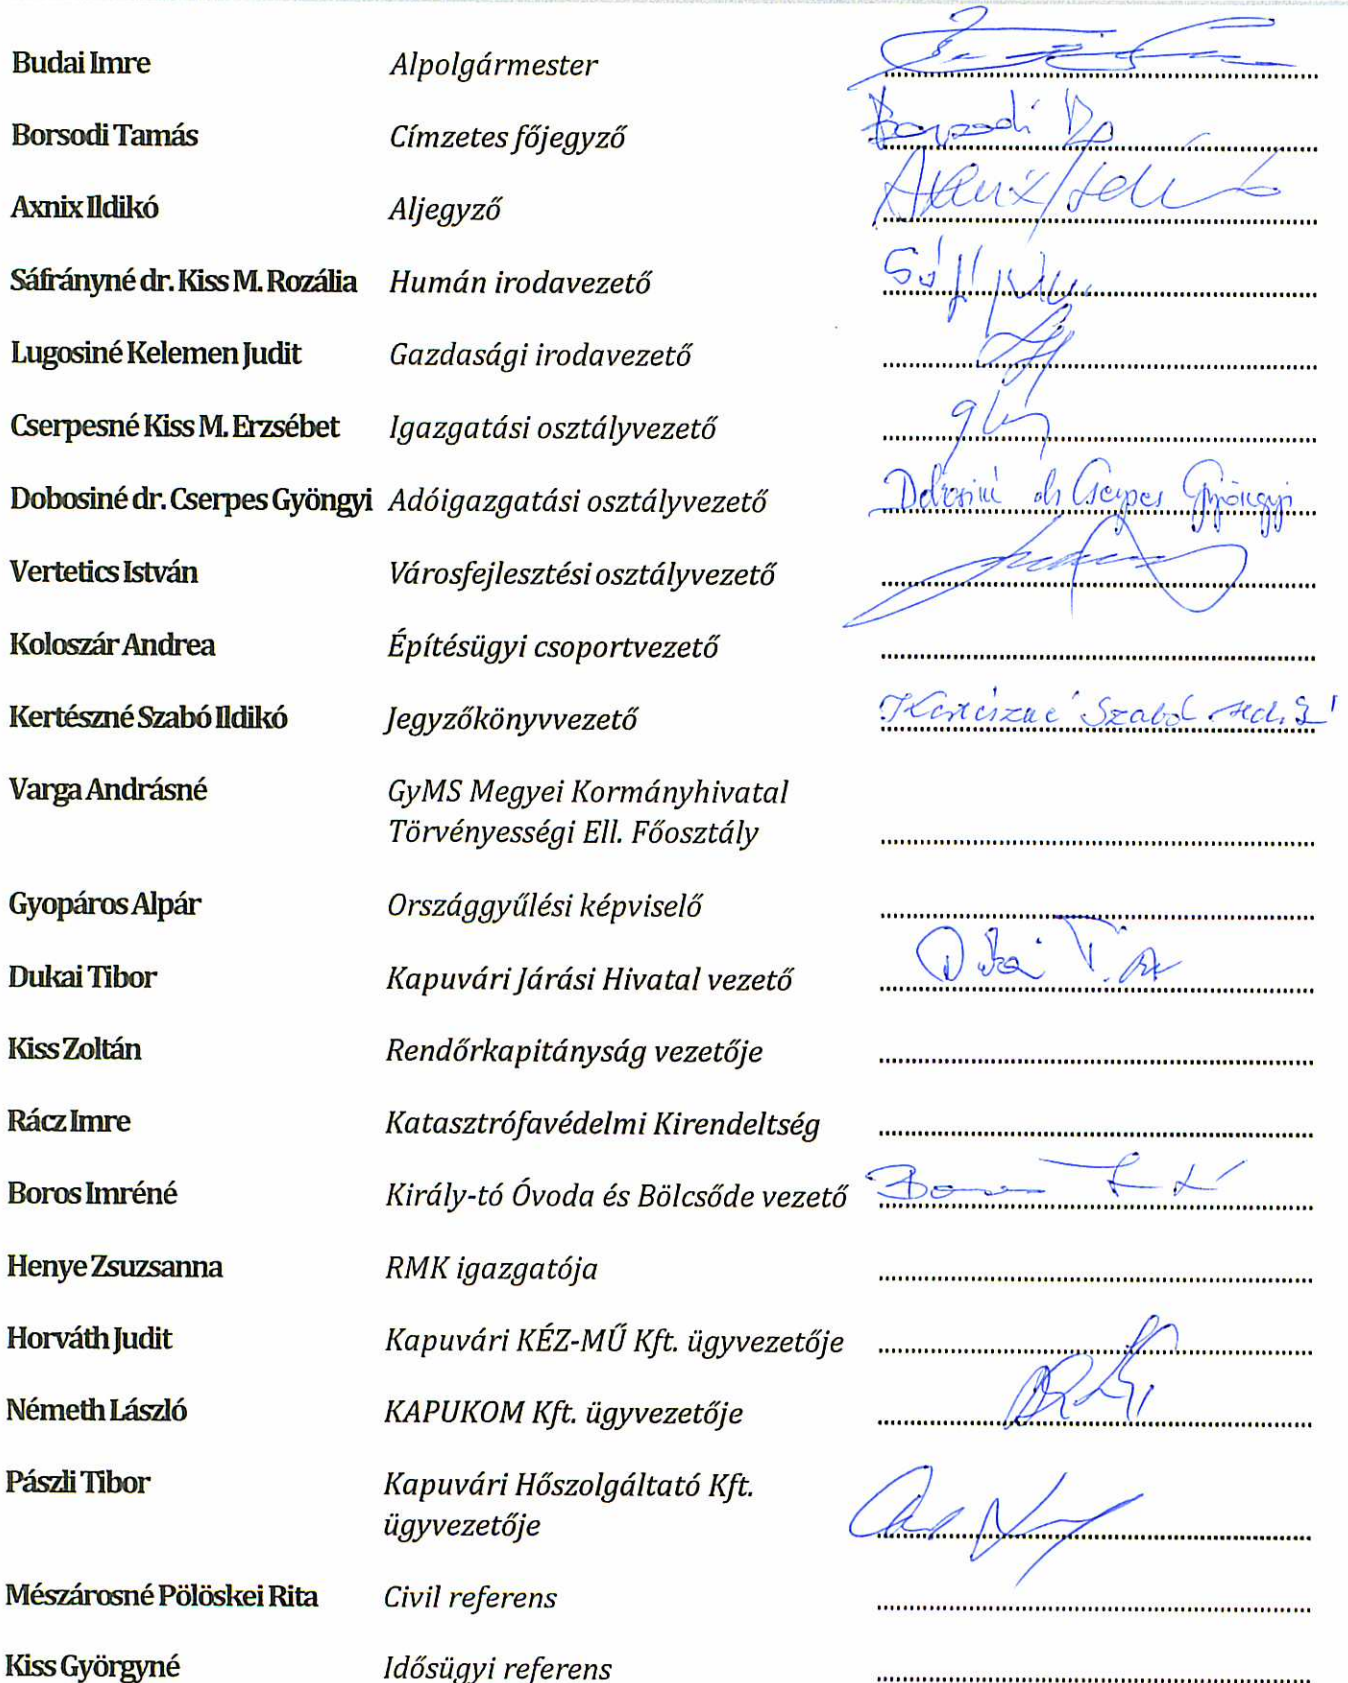 Budai Imre Alpolgármester
Borsodi Tamás Címzetes főjegyző Borsodi
Axnix Ildikó Aljegyző Axnix Ildikó
Sáfrányné dr. Kiss M. Rozália Humán irodavezető
Lugosiné Kelemen Judit Gazdasági irodavezető
Cserpesné Kiss M. Erzsébet Igazgatási osztályvezető
Dobosiné dr. Cserpes Gyöngyi Adóigazgatási osztályvezető Dobosiné dr Cserpes Gyöngyi
Vertetics István Városfejlesztési osztályvezető
Koloszár Andrea Építésügyi csoportvezető
Kertészné Szabó Ildikó Jegyzőkönyvvezető Kertészné Szabó
Varga Andrásné GyMS Megyei Kormányhivatal
Törvényességi Ell. Főosztály
Gyopáros Alpár Országgyűlési képviselő
Dukai Tibor Kapuvári Járási Hivatal vezető
Kiss Zoltán Rendőrkapitányság vezetője
Rácz Imre Katasztrófavédelmi Kirendeltség
Boros Imréné Király-tó Óvoda és Bölcsőde vezető
Henye Zsuzsanna RMK igazgatója
Horváth Judit Kapuvári KÉZ-MŰ Kft. ügyvezetője
Németh László KAPUKOM Kft. ügyvezetője
Pászli Tibor Kapuvári Hőszolgáltató Kft.
ügyvezetője
Mészárosné Pölöskei Rita Civil referens
Kiss Györgyné Idősügyi referens